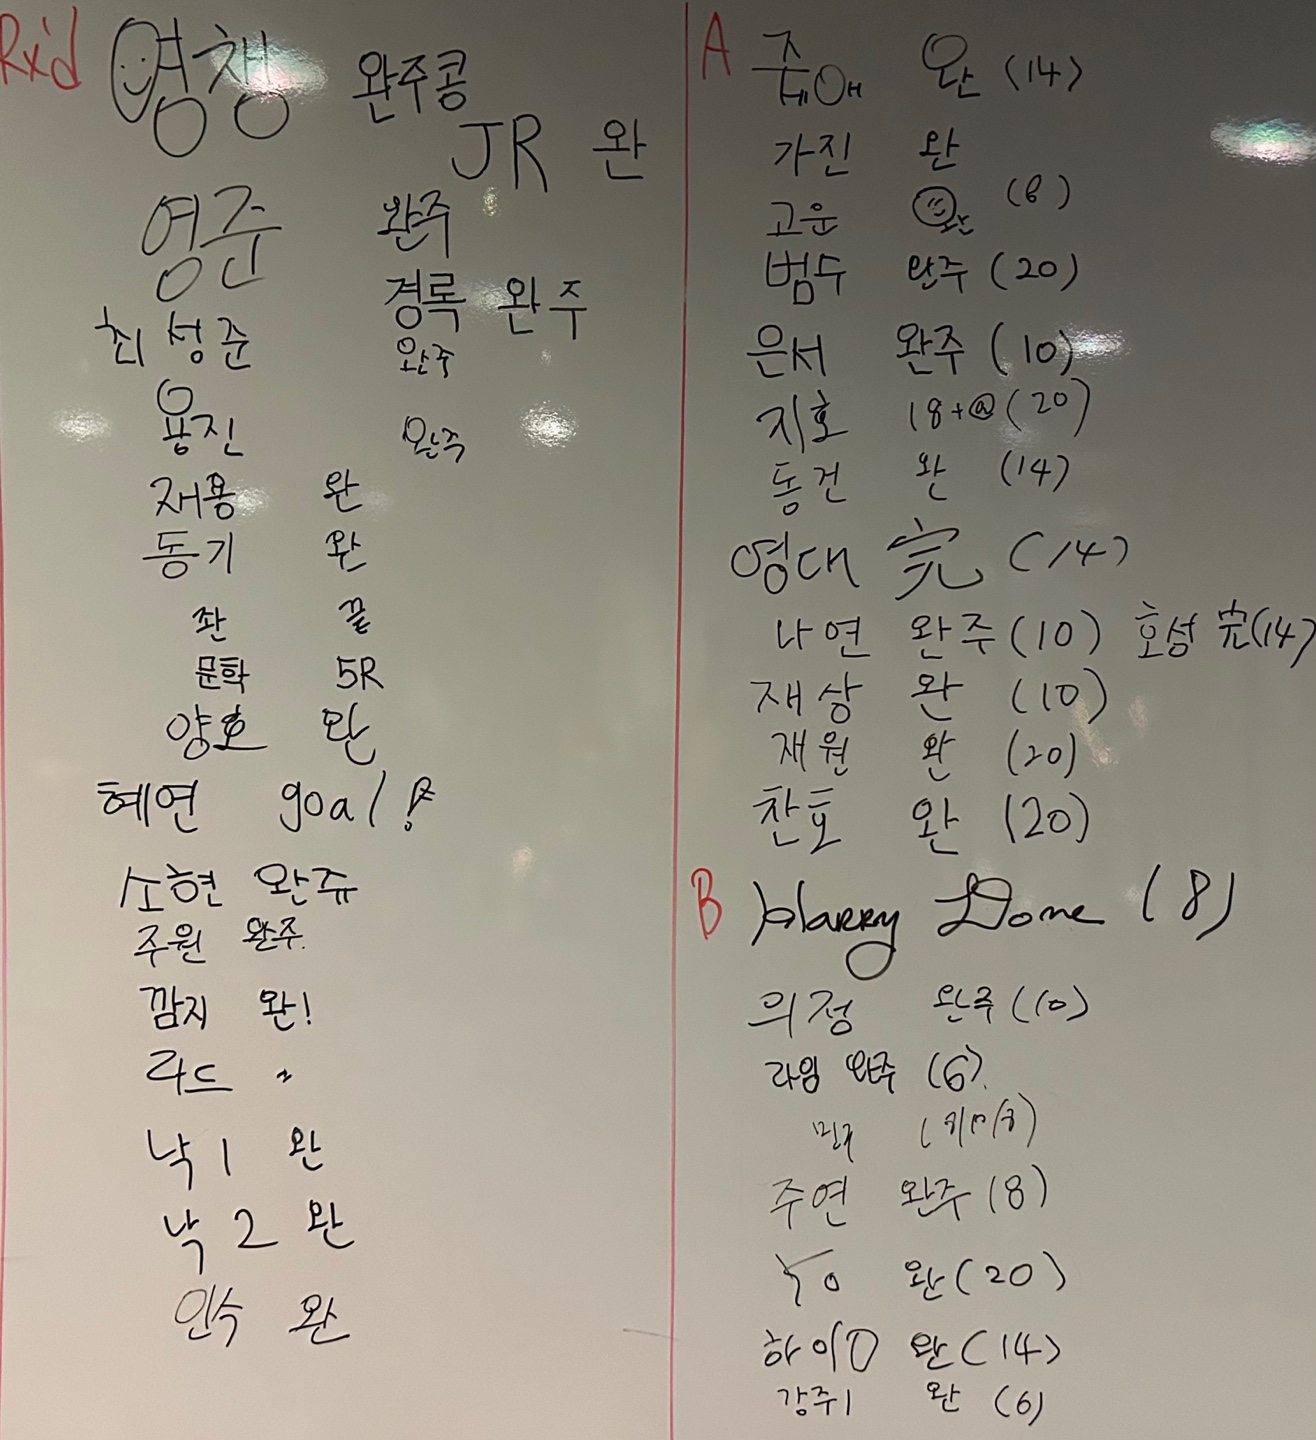 Rx'd 영챙 완주콩
JR 완
영준 완주
경록 완주
최성준 완주
용진 완주
재용 완
동기 완
좐 끝
문학 5R
양호 완
혜연 goal!
소현 완쥬
주원 완주.
깜지 완!
라드 〃
낙1 완
낙2 완
인수 완
A 완 (14)
가진 완
고운 완 (6)
범수 완주 (20)
은서 완주 (10)
지호 18+@ (20)
동건 완 (14)
영대 完 (14)
나연 완주 (10) 호성 完 (14)
재상 완 (10)
재원 완 (20)
찬호 완 (20)
B Harry Done (8)
의정 완주 (10)
라임 완주 (6).
주연 완주 (8)
완 (20)
하이 완 (14)
강주1 완 (6)